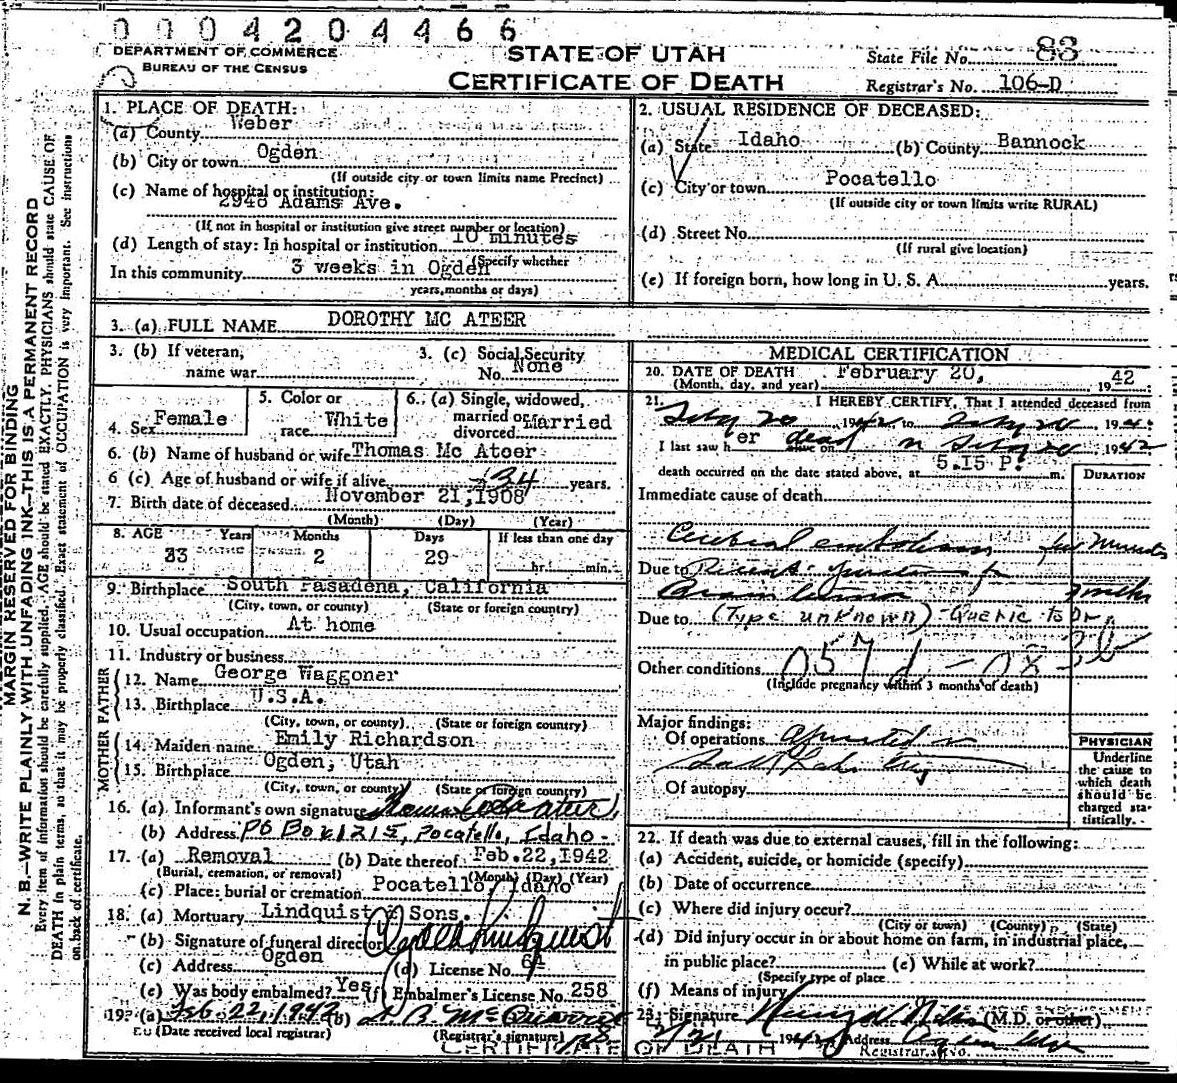 0 0 0 4 2 0 4 4 6 6
DEPARTMENT OF COMMERCE
BUREAU OF THE CENSUS
STATE OF UTAH
CERTIFICATE OF DEATH
State File No. 83
Registrar's No. 106-D
MARGIN RESERVED FOR BINDING
N. B.—WRITE PLAINLY WITH UNFADING INK—THIS IS A PERMANENT RECORD
Every item of information should be carefully supplied. AGE should be stated EXACTLY. PHYSICIANS should state CAUSE OF
DEATH in plain terms, so that it may be properly classified. Exact statement of OCCUPATION is very important. See instructions
on back of certificate.
1. PLACE OF DEATH:
(a) County Weber
(b) City or town Ogden
(If outside city or town limits name Precinct)
(c) Name of hospital or institution:
2948 Adams Ave.
(If not in hospital or institution give street number or location)
(d) Length of stay: In hospital or institution 10 minutes
(Specify whether
In this community 3 weeks in Ogden
years, months or days)
2. USUAL RESIDENCE OF DECEASED:
(a) State Idaho (b) County Bannock
(c) City or town Pocatello
(If outside city or town limits write RURAL)
(d) Street No.
(If rural give location)
(e) If foreign born, how long in U. S. A. years.
3. (a) FULL NAME DOROTHY MC ATEER
3. (b) If veteran, name war
3. (c) Social Security No. None
4. Sex Female
5. Color or race White
6. (a) Single, widowed, married or divorced Married
6. (b) Name of husband or wife Thomas Mc Ateer
6 (c) Age of husband or wife if alive 34 years.
7. Birth date of deceased November 21, 1908
(Month) (Day) (Year)
8. AGE Years Months Days If less than one day
33 2 29 hr. min.
9. Birthplace South Pasadena, California
(City, town, or county) (State or foreign country)
10. Usual occupation At home
11. Industry or business
FATHER
12. Name George Waggoner
13. Birthplace U.S.A.
(City, town, or county) (State or foreign country)
MOTHER
14. Maiden name Emily Richardson
15. Birthplace Ogden, Utah
(City, town, or county) (State or foreign country)
16. (a) Informant's own signature
(b) Address PO Box 1215, Pocatello, Idaho
17. (a) Removal (b) Date thereof Feb. 22, 1942
(Burial, cremation, or removal) (Month) (Day) (Year)
(c) Place: burial or cremation Pocatello, Idaho
18. (a) Mortuary Lindquist & Sons.
(b) Signature of funeral director
(c) Address Ogden (d) License No. 64
(e) Was body embalmed? Yes (f) Embalmer's License No. 258
19. (a) Feb 22, 1942 (b)
(Date received local registrar) (Registrar's signature)
MEDICAL CERTIFICATION
20. DATE OF DEATH February 20, 1942
(Month, day, and year)
21. I HEREBY CERTIFY, That I attended deceased from
Feby 20 1942 to Feby 20 194
I last saw her dead alive on Feby 20 1942
death occurred on the date stated above, at 5.15 P. m.
DURATION
Immediate cause of death
Cerebral embolism few minutes
Due to Recent
Due to (Type unknown) Queric to Dr.
Other conditions 057 d
(Include pregnancy within 3 months of death)
Major findings:
Of operations
Of autopsy
PHYSICIAN
Underline
the cause to
which death
should be
charged sta-
tistically.
22. If death was due to external causes, fill in the following:
(a) Accident, suicide, or homicide (specify)
(b) Date of occurrence
(c) Where did injury occur?
(City or town) (County) (State)
(d) Did injury occur in or about home on farm, in industrial place,
in public place? (e) While at work?
(Specify type of place
(f) Means of injury
23. Signature (M.D. or other)
2/21 194 Address Ogden
CERTIFICATE OF DEATH
Registrar's No.